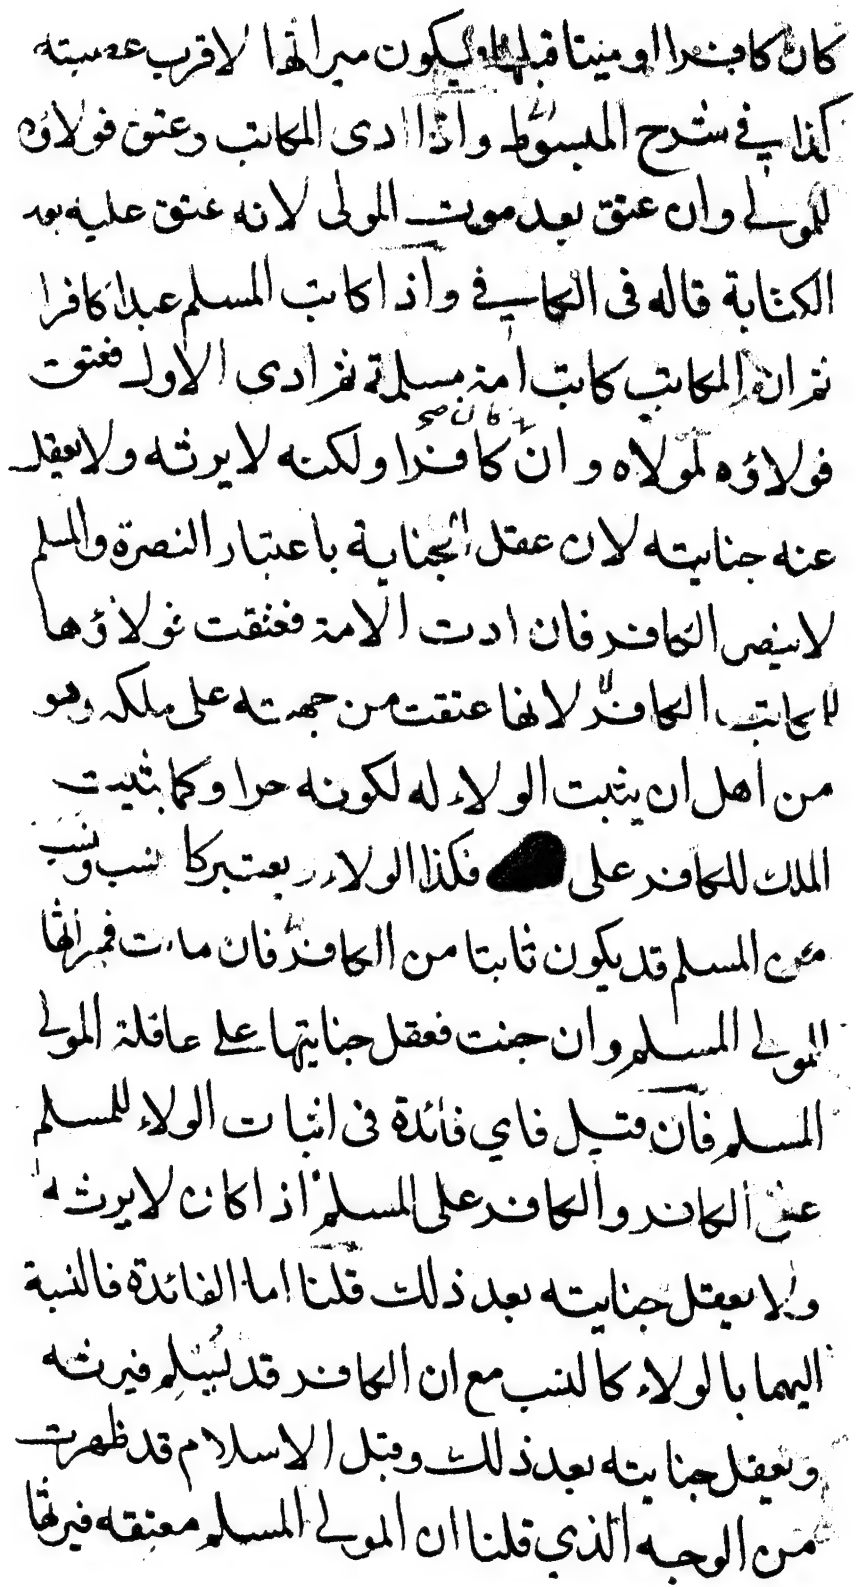 كان كافرا او ميتا قبلها فيكون ميراثها لاقرب عصبته
كذا في شرح المبسوط واذا ادى المكاتب وعتق فولاؤه
للمولى وان عتق بعد موت المولى لانه عتق عليه بعد
الكتابة قاله فى الكافي واذا كاتب المسلم عبدا كافرا
ثم ان المكاتب كاتب امة مسلمة ثم ادى الاول فعتق
فولاؤه لمولاه وان كان كافرا ولكنه لا يرثه ولا يعقل
عنه جنايته لان عقل الجناية باعتبار النصرة والمسلم
لا ينصر الكافر فان ادت الامة فعتقت فولاؤها
للمكاتب الكافر لانها عتقت من جهته على ملكه وهو
من اهل ان يثبت الولاء له لكونه حرا وكما يثبت
الملك للكافر على فكذا الولاء يعتبر كا لنسب ونسب
من المسلم قد يكون ثابتا من الكافر فان ماتت فميراثها
للمولى المسلم وان جنت فعقل جنايتها على عاقلة المولى
المسلم فان قيل فاي فائدة فى اثبات الولاء للمسلم
على الكافر والكافر على المسلم اذا كان لا يرثه
ولا يعقل جنايته بعد ذلك قلنا اما الفائدة فالنسبة
اليهما بالولاء كالنسب مع ان الكافر قد يسلم فيرثه
ويعقل جنايته بعد ذلك وقبل الاسلام قد ظهرت
من الوجه الذي قلنا ان المولى المسلم معتقه فيرثها